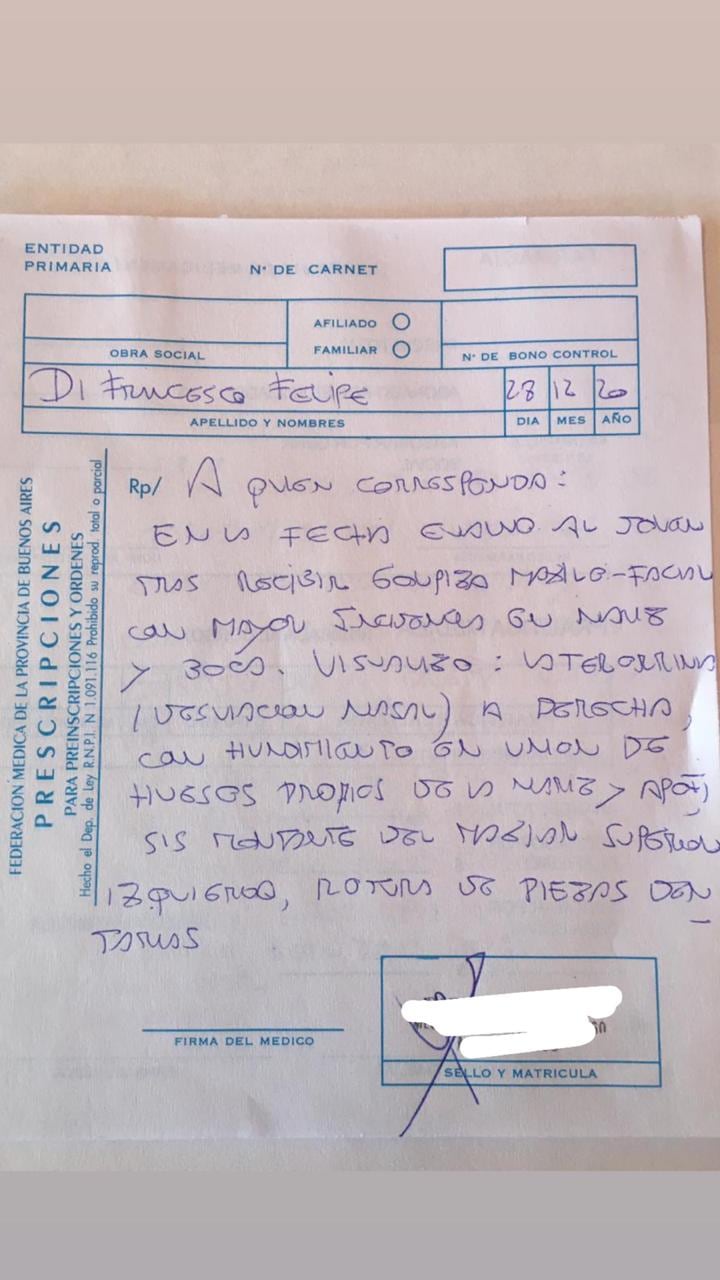 ENTIDAD
PRIMARIA
N° DE CARNET
AFILIADO
FAMILIAR
OBRA SOCIAL
N° DE BONO CONTROL
DI FRANCESCO FELIPE
28 12 20
APELLIDO Y NOMBRES
DIA MES AÑO
FEDERACIÓN MEDICA DE LA PROVINCIA DE BUENOS AIRES
PRESCRIPCIONES
PARA PREINSCRIPCIONES Y ORDENES
Hecho el Dep. de Ley R.N.P.I. N 1.091.116 Prohibido su reprod. total o parcial
Rp/ A QUIEN CORRESPONDA:
EN LA FECHA EXAMINO AL JOVEN
TRAS RECIBIR GOLPIZA MAXILO-FACIAL
CON MAYOR EN NARIZ
Y BOCA. VISUALIZO: LATERORRINIA
(DESVIACION NASAL) A DERECHA,
CON HUNDIMIENTO EN UNION DE
HUESOS PROPIOS DE LA NARIZ Y APÓFI
SIS MONTANTE DEL MAXILAR SUPERIOR
IZQUIERDO, ROTURA DE PIEZAS DEN
TARIAS
FIRMA DEL MEDICO
SELLO Y MATRICULA